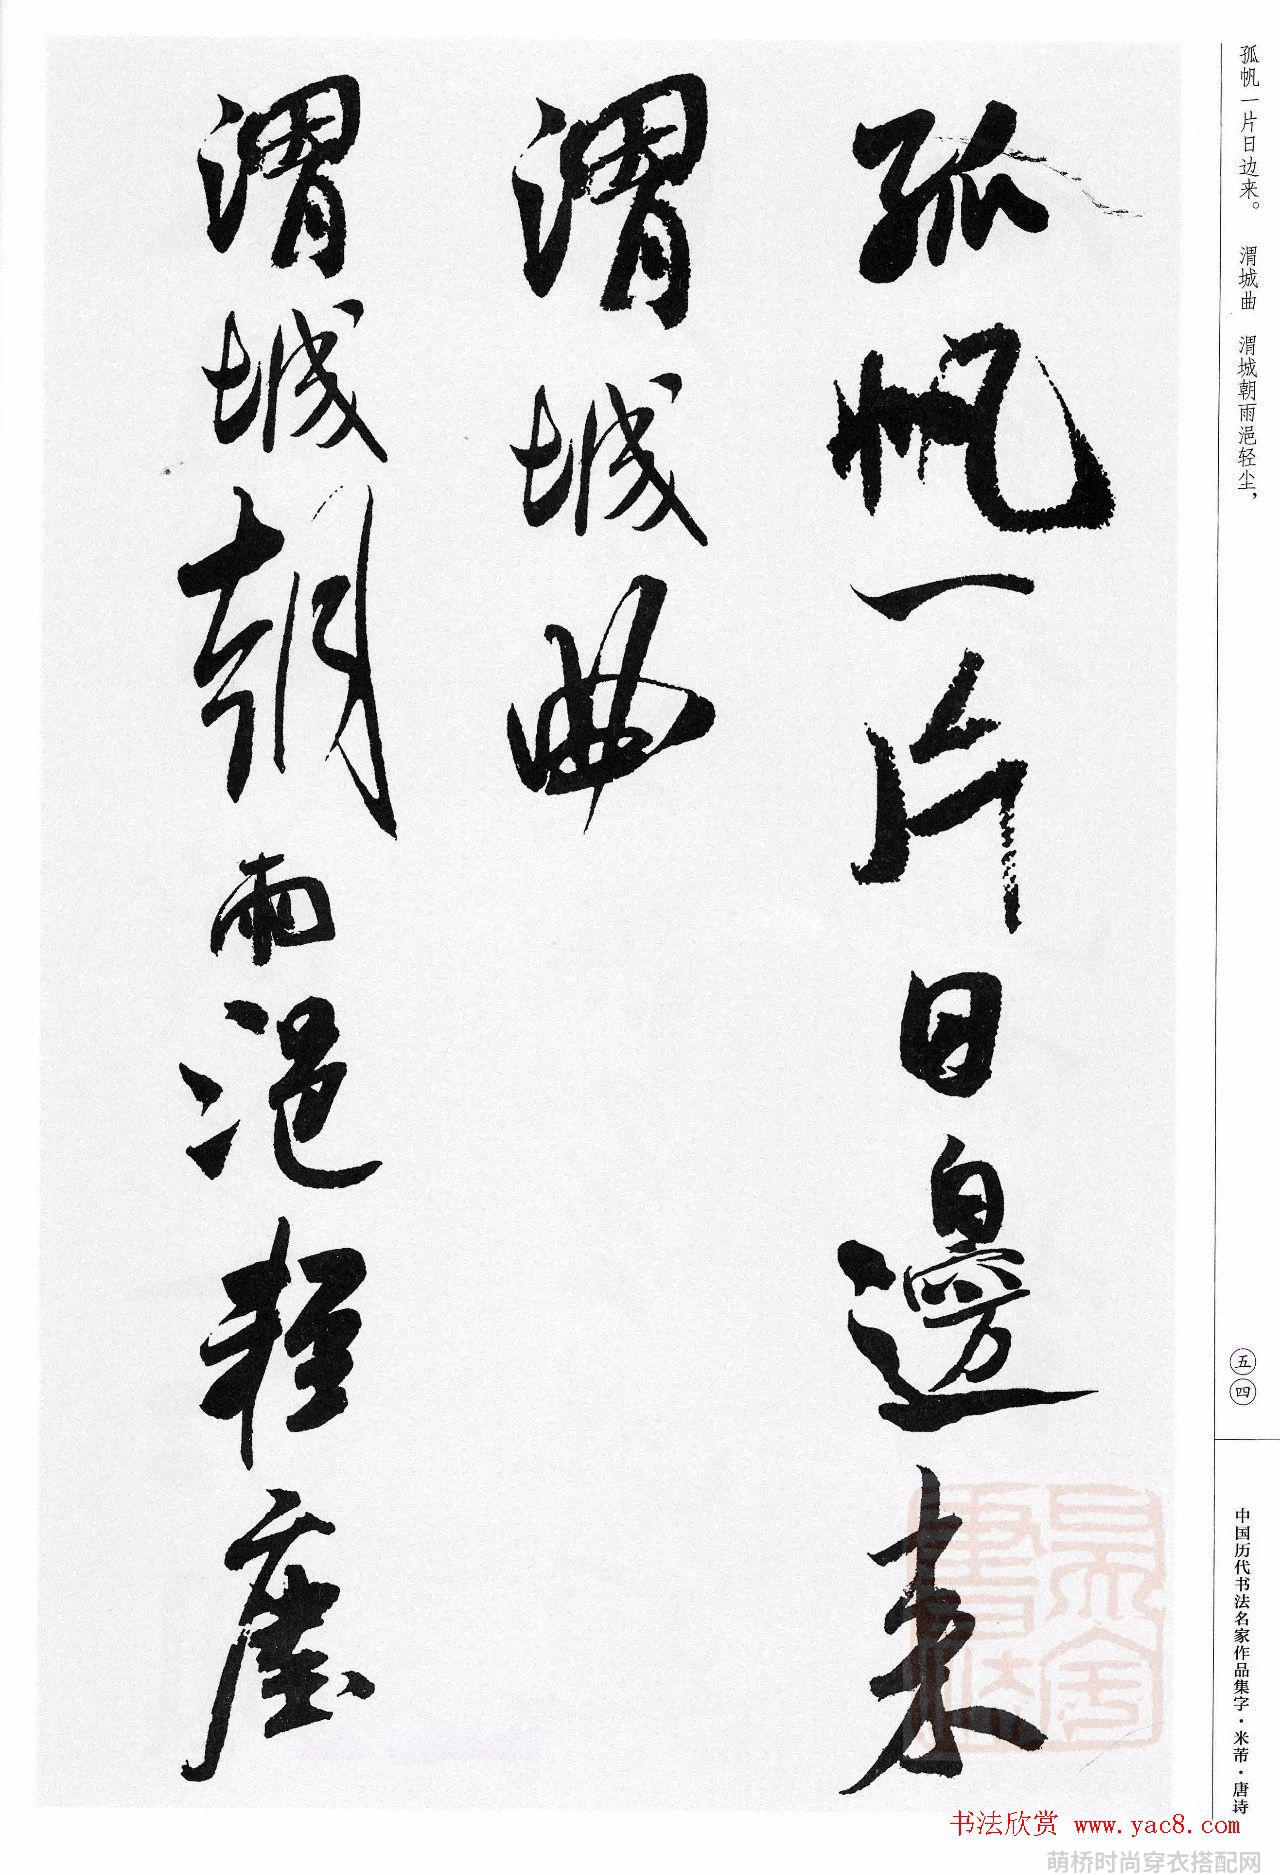 孤帆一片日邊来
渭城曲
渭城朝雨浥輕塵
孤帆一片日边来。 渭城曲 渭城朝雨浥轻尘，
五四
中国历代书法名家作品集字·米芾·唐诗
书法欣赏 www.yac8.com
萌桥时尚穿衣搭配网